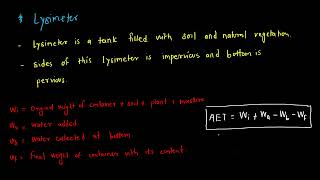 * Lysimeter
- Lysimeter is a tank filled with soil and natural vegetation.
- sides of this lysimeter is impervious and bottom is pervious.
Wi = Original weight of container + soil + plant + moisture
Wa = Water added.
Wb = Water collected at bottom.
Wf = Final weight of container with its content.
AET = Wi + Wa - Wb - Wf